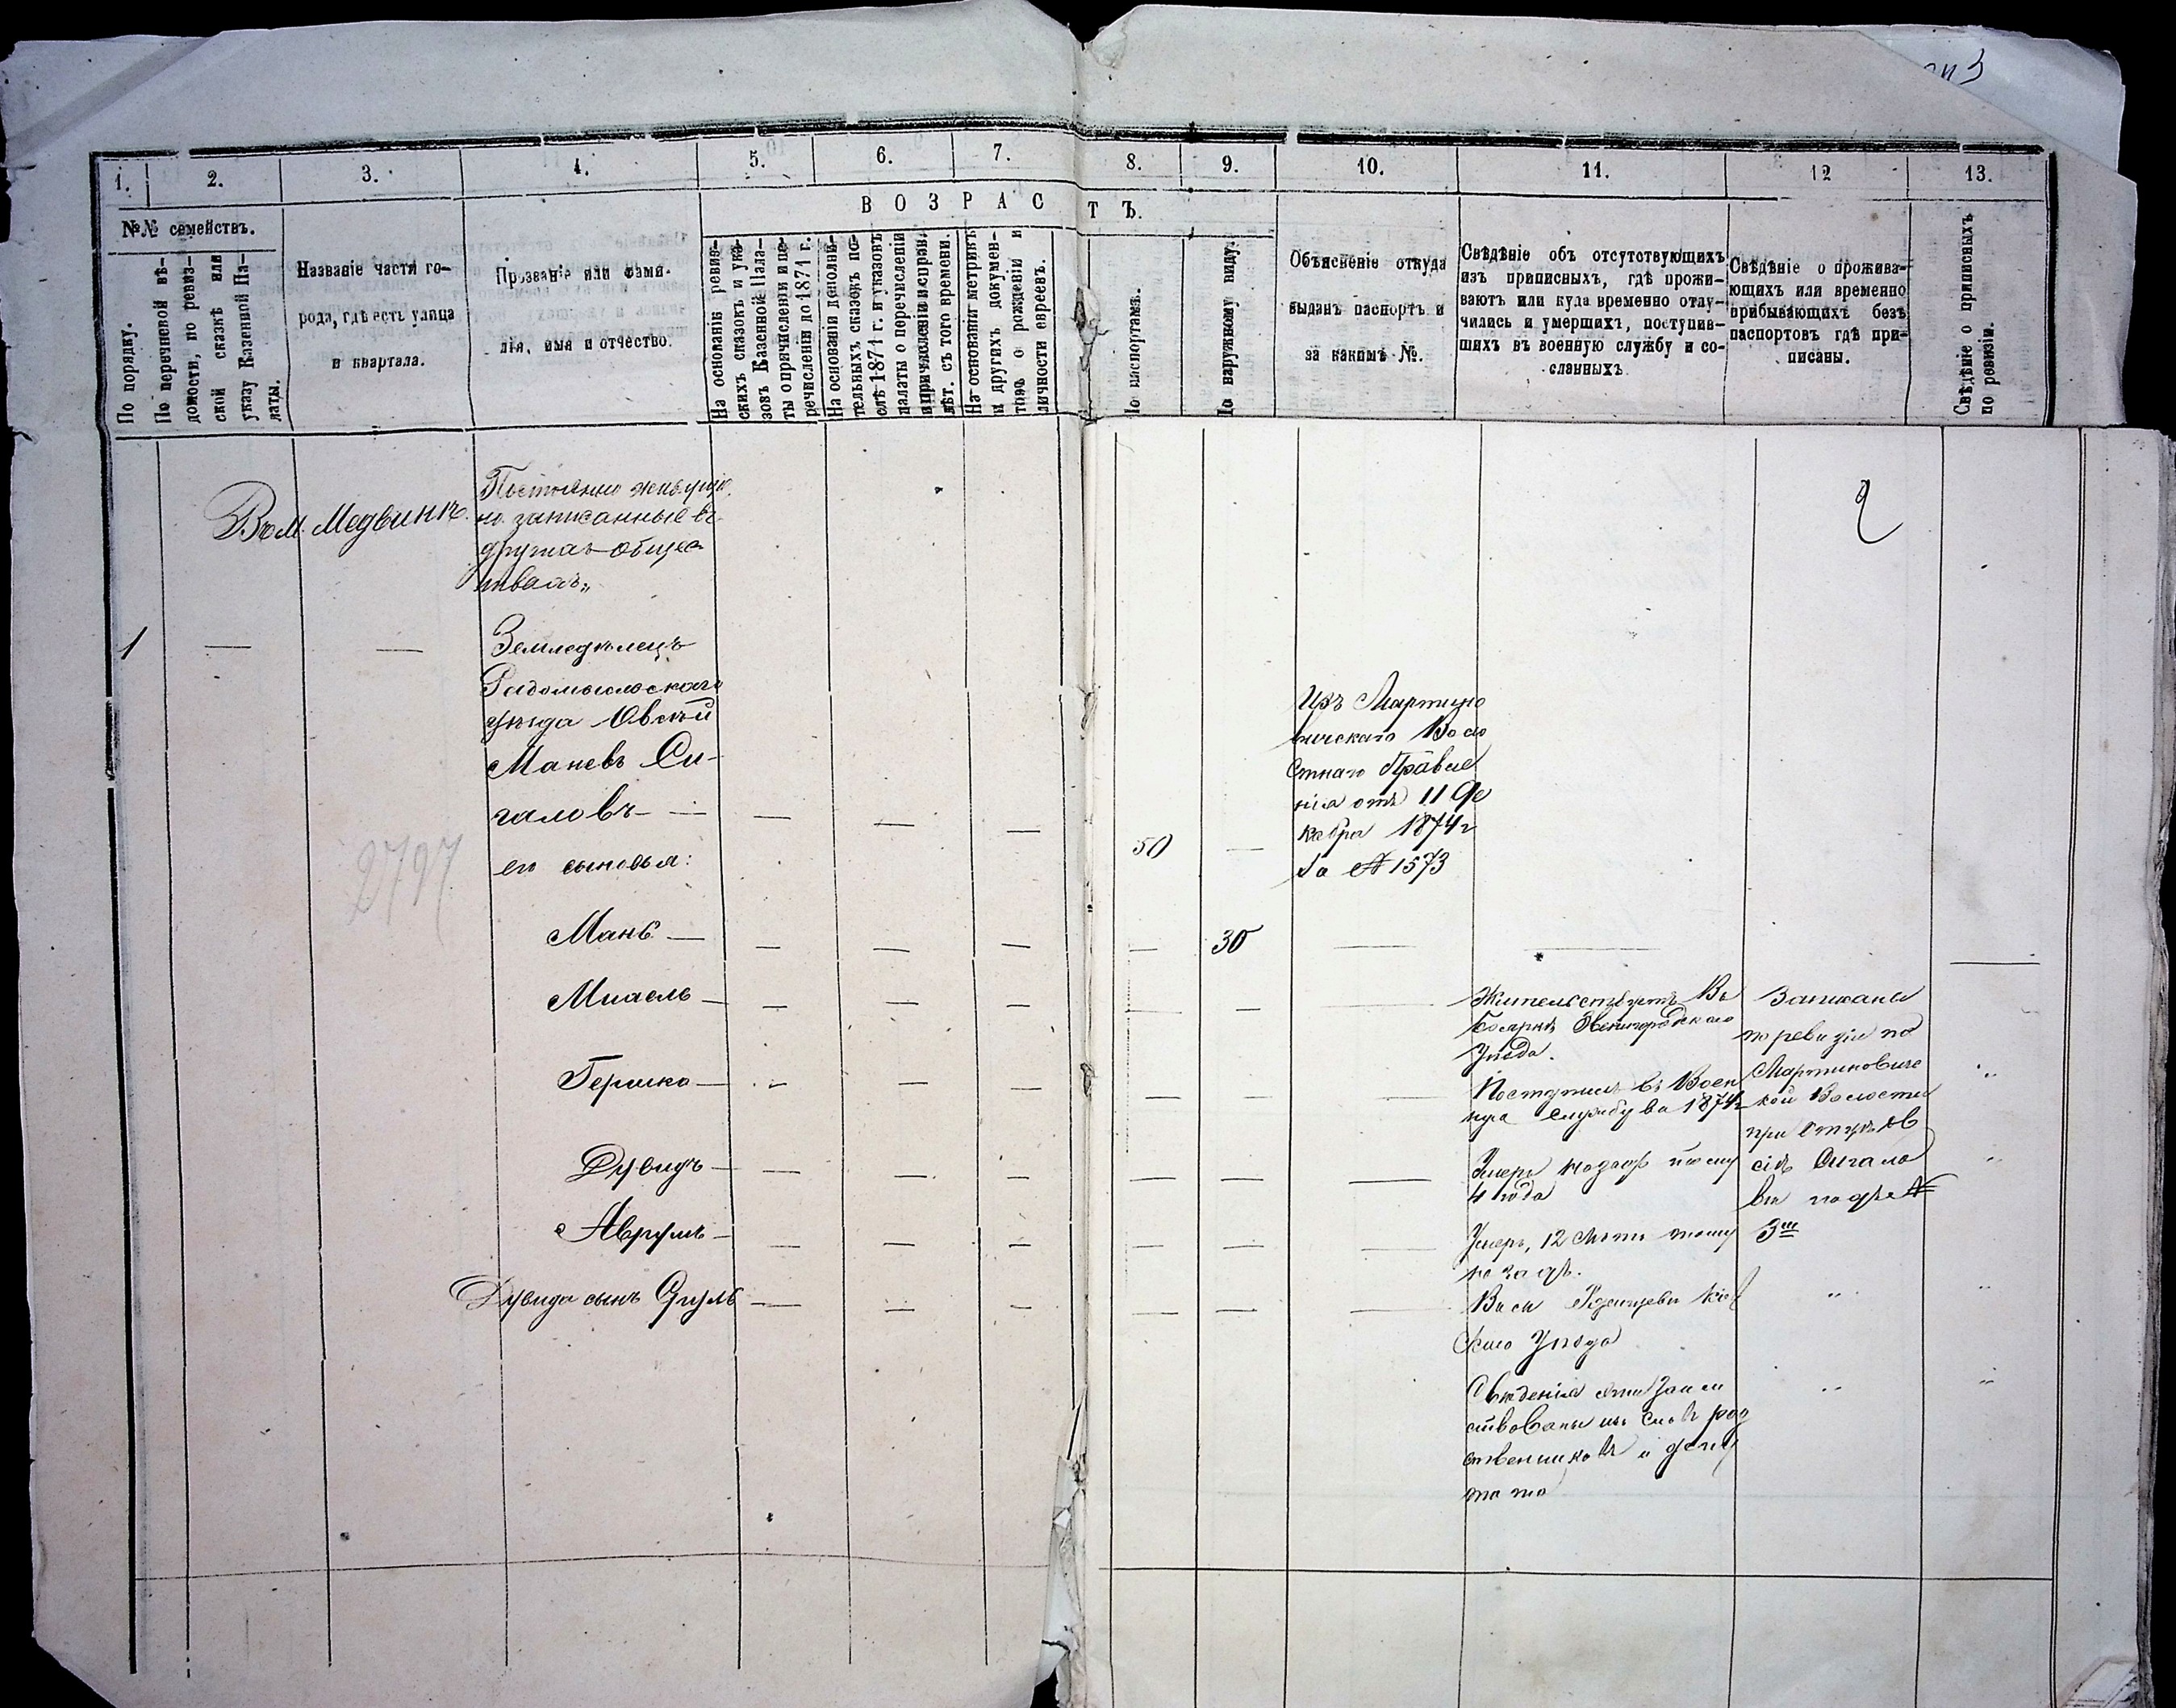 1.
2.
3.
4.
5.
6.
7.
8.
9.
10.
11.
12
13.
№№ семействъ.
По порядку.
По перечневой вѣ-
домости, по ревиз-
ской сказкѣ или
указу Казенной Па-
латы.
Названіе части го-
рода, гдѣ есть улица
и квартала.
Прозваніе или фами-
лія, имя и отчество.
ВОЗРАСТЪ.
На основаніи ревиз-
скихъ сказокъ и ука-
зовъ Казенной Пала-
ты о причисленіи и пе-
речисленіи до 1871 г.
На основаніи дополни-
тельныхъ сказокъ по-
слѣ 1871 г. и указовъ
палаты о перечисленіи
и причисленіи и исправ.
лѣт. съ того времени.
На основаніи метрикъ
и другихъ докумен-
товъ о рожденіи и
личности евреевъ.
По паспортамъ.
По наружному виду.
Объясненіе откуда
выданъ паспортъ и
за какимъ №.
Свѣдѣніе объ отсутствующихъ
изъ приписныхъ, гдѣ прожи-
ваютъ или куда временно отлу-
чились и умершихъ, поступив-
шихъ въ военную службу и со-
сланныхъ
Свѣдѣніе о прожива-
ющихъ или временно
прибывающихъ безъ
паспортовъ гдѣ при-
писаны.
Свѣдѣніе о приписныхъ
по ревизіи.
Въ м. Медвинѣ
Постоянно живущіе
но записанные въ
другихъ общес
твахъ„
2
1 — —
Земледѣлецъ
Радомысльскаго
уѣзда Овсѣй
Маневъ Си-
галовъ — — — —
50 —
Изъ Мартино
вичскаго Воло
стнаго Правле
нія отъ 11 Де
кабря 1874 г
за № 1573
2797
его сыновья:
Мань — — — — — 30 — — —
Миаель — — — — — — —
Жительствуетъ Въ
Боярке Звенигородскаго
Уѣзда.
Записаны
по ревизіи по
Мартинович
кой Волости
при
Сигало
вы подъ №
3ш
Гершко — — — — — —
Поступилъ въ Воен
ную службу въ 1874 г
Дувидъ — — — — — — —
Умеръ назадъ тому
4 года
Аврумъ — — — — — — —
Умеръ, 12 лѣтъ тому
назадъ.
Дувида сынъ Сруль — — — — — —
Кіев
скаго Уѣзда
Свѣденія эти Заим
ствованы изъ словъ род
ственниковъ и депу
тата